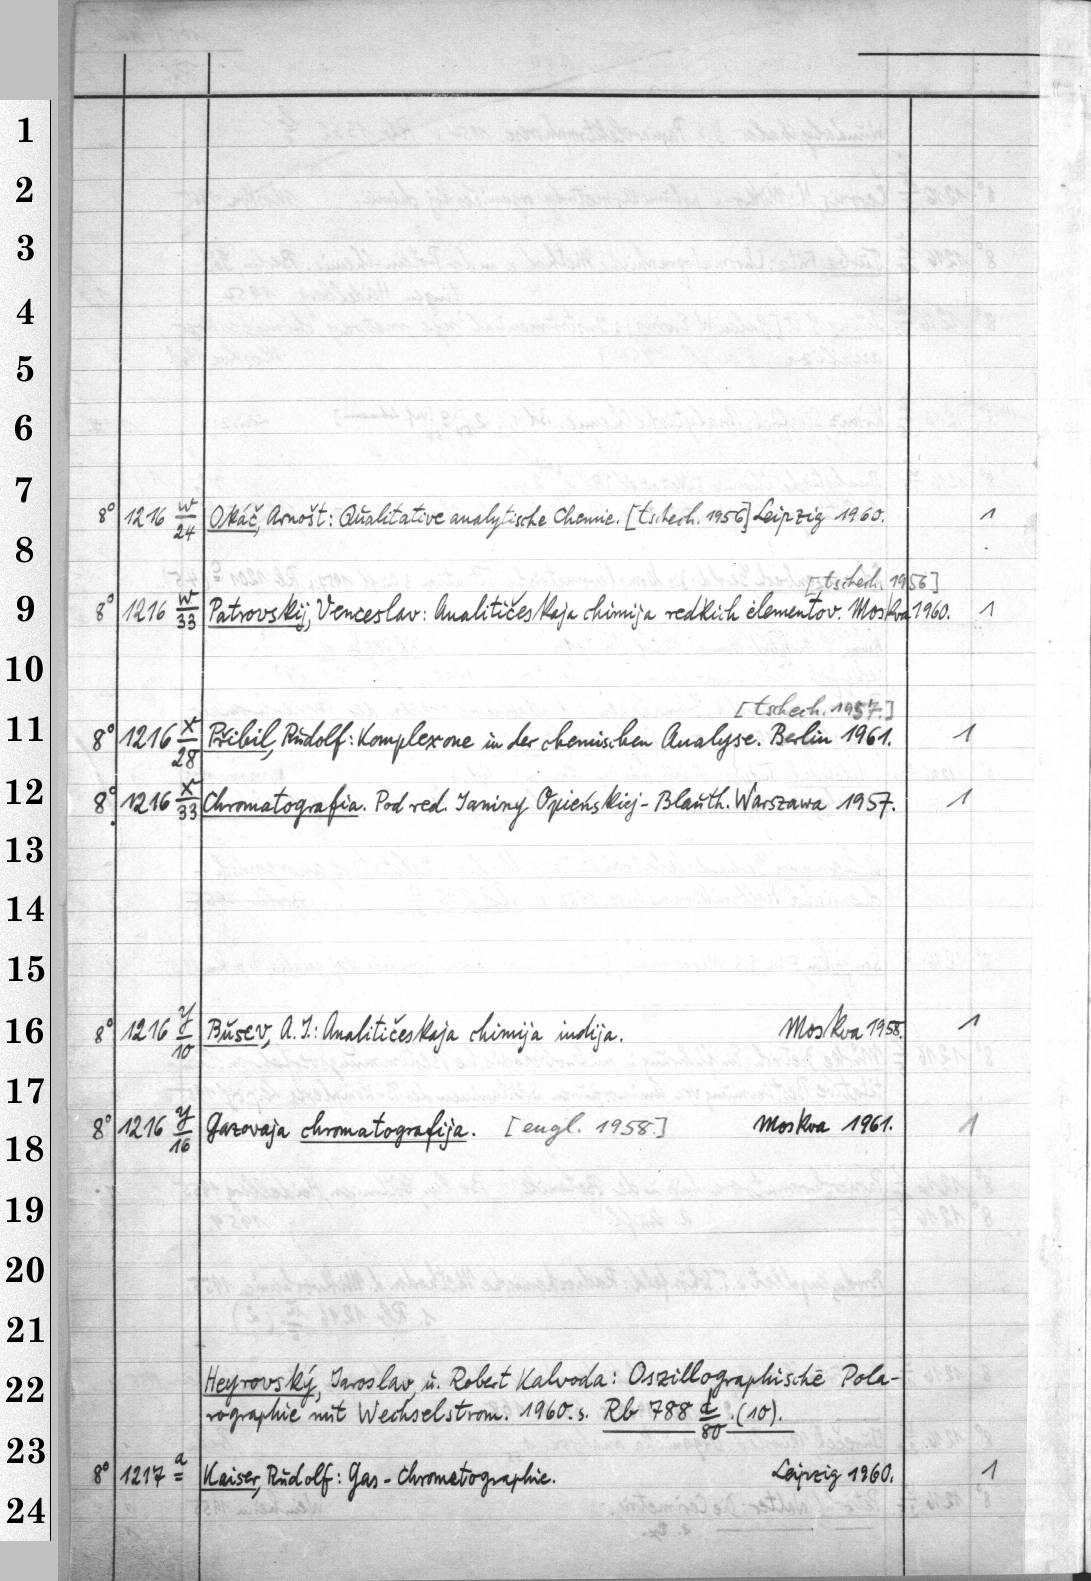 1
2
3
4
5
6
7
8° 1216 w/24 Okáč, Arnošt: Qualitative analytische Chemie. [tschech. 1956] Leipzig 1960. 1
8
[tschech. 1956]
9
8° 1216 w/33 Patrovskij, Venceslav: Analitičeskaja chimija redkich elementov. Moskva 1960. 1
10
[tschech. 1957.]
11
8° 1216 x/28 Přibil, Rudolf: Komplexone in der chemischen Analyse. Berlin 1961. 1
12
8° 1216 x/33 Chromatografia. Pod red. Janiny Opieńskiej-Blauth. Warszawa 1957. 1
13
14
15
16
8° 1216 y/10 Busev, A. I.: Analitičeskaja chimija indija. Moskva 1958. 1
17
8° 1216 y/16 Gazovaja chromatografija. [engl. 1958.] Moskva 1961. 1
18
19
20
21
22
Heyrovský, Jaroslav, u. Robert Kalvoda: Oszillographische Pola-
rographie mit Wechselstrom. 1960. s. Rb 788 d/80 (10).
23
8° 1217 a Kaiser, Rudolf: Gas-Chromatographie. Leipzig 1960. 1
24